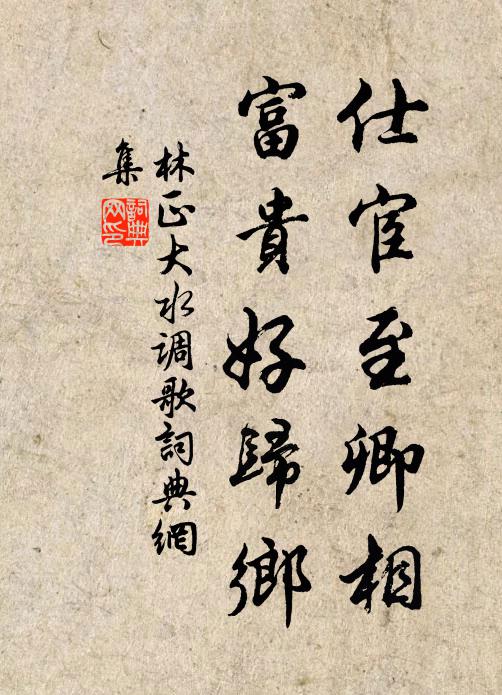 仕宦至卿相
富貴好歸鄉
林正大水调歌詞典網
集
詞典
网印